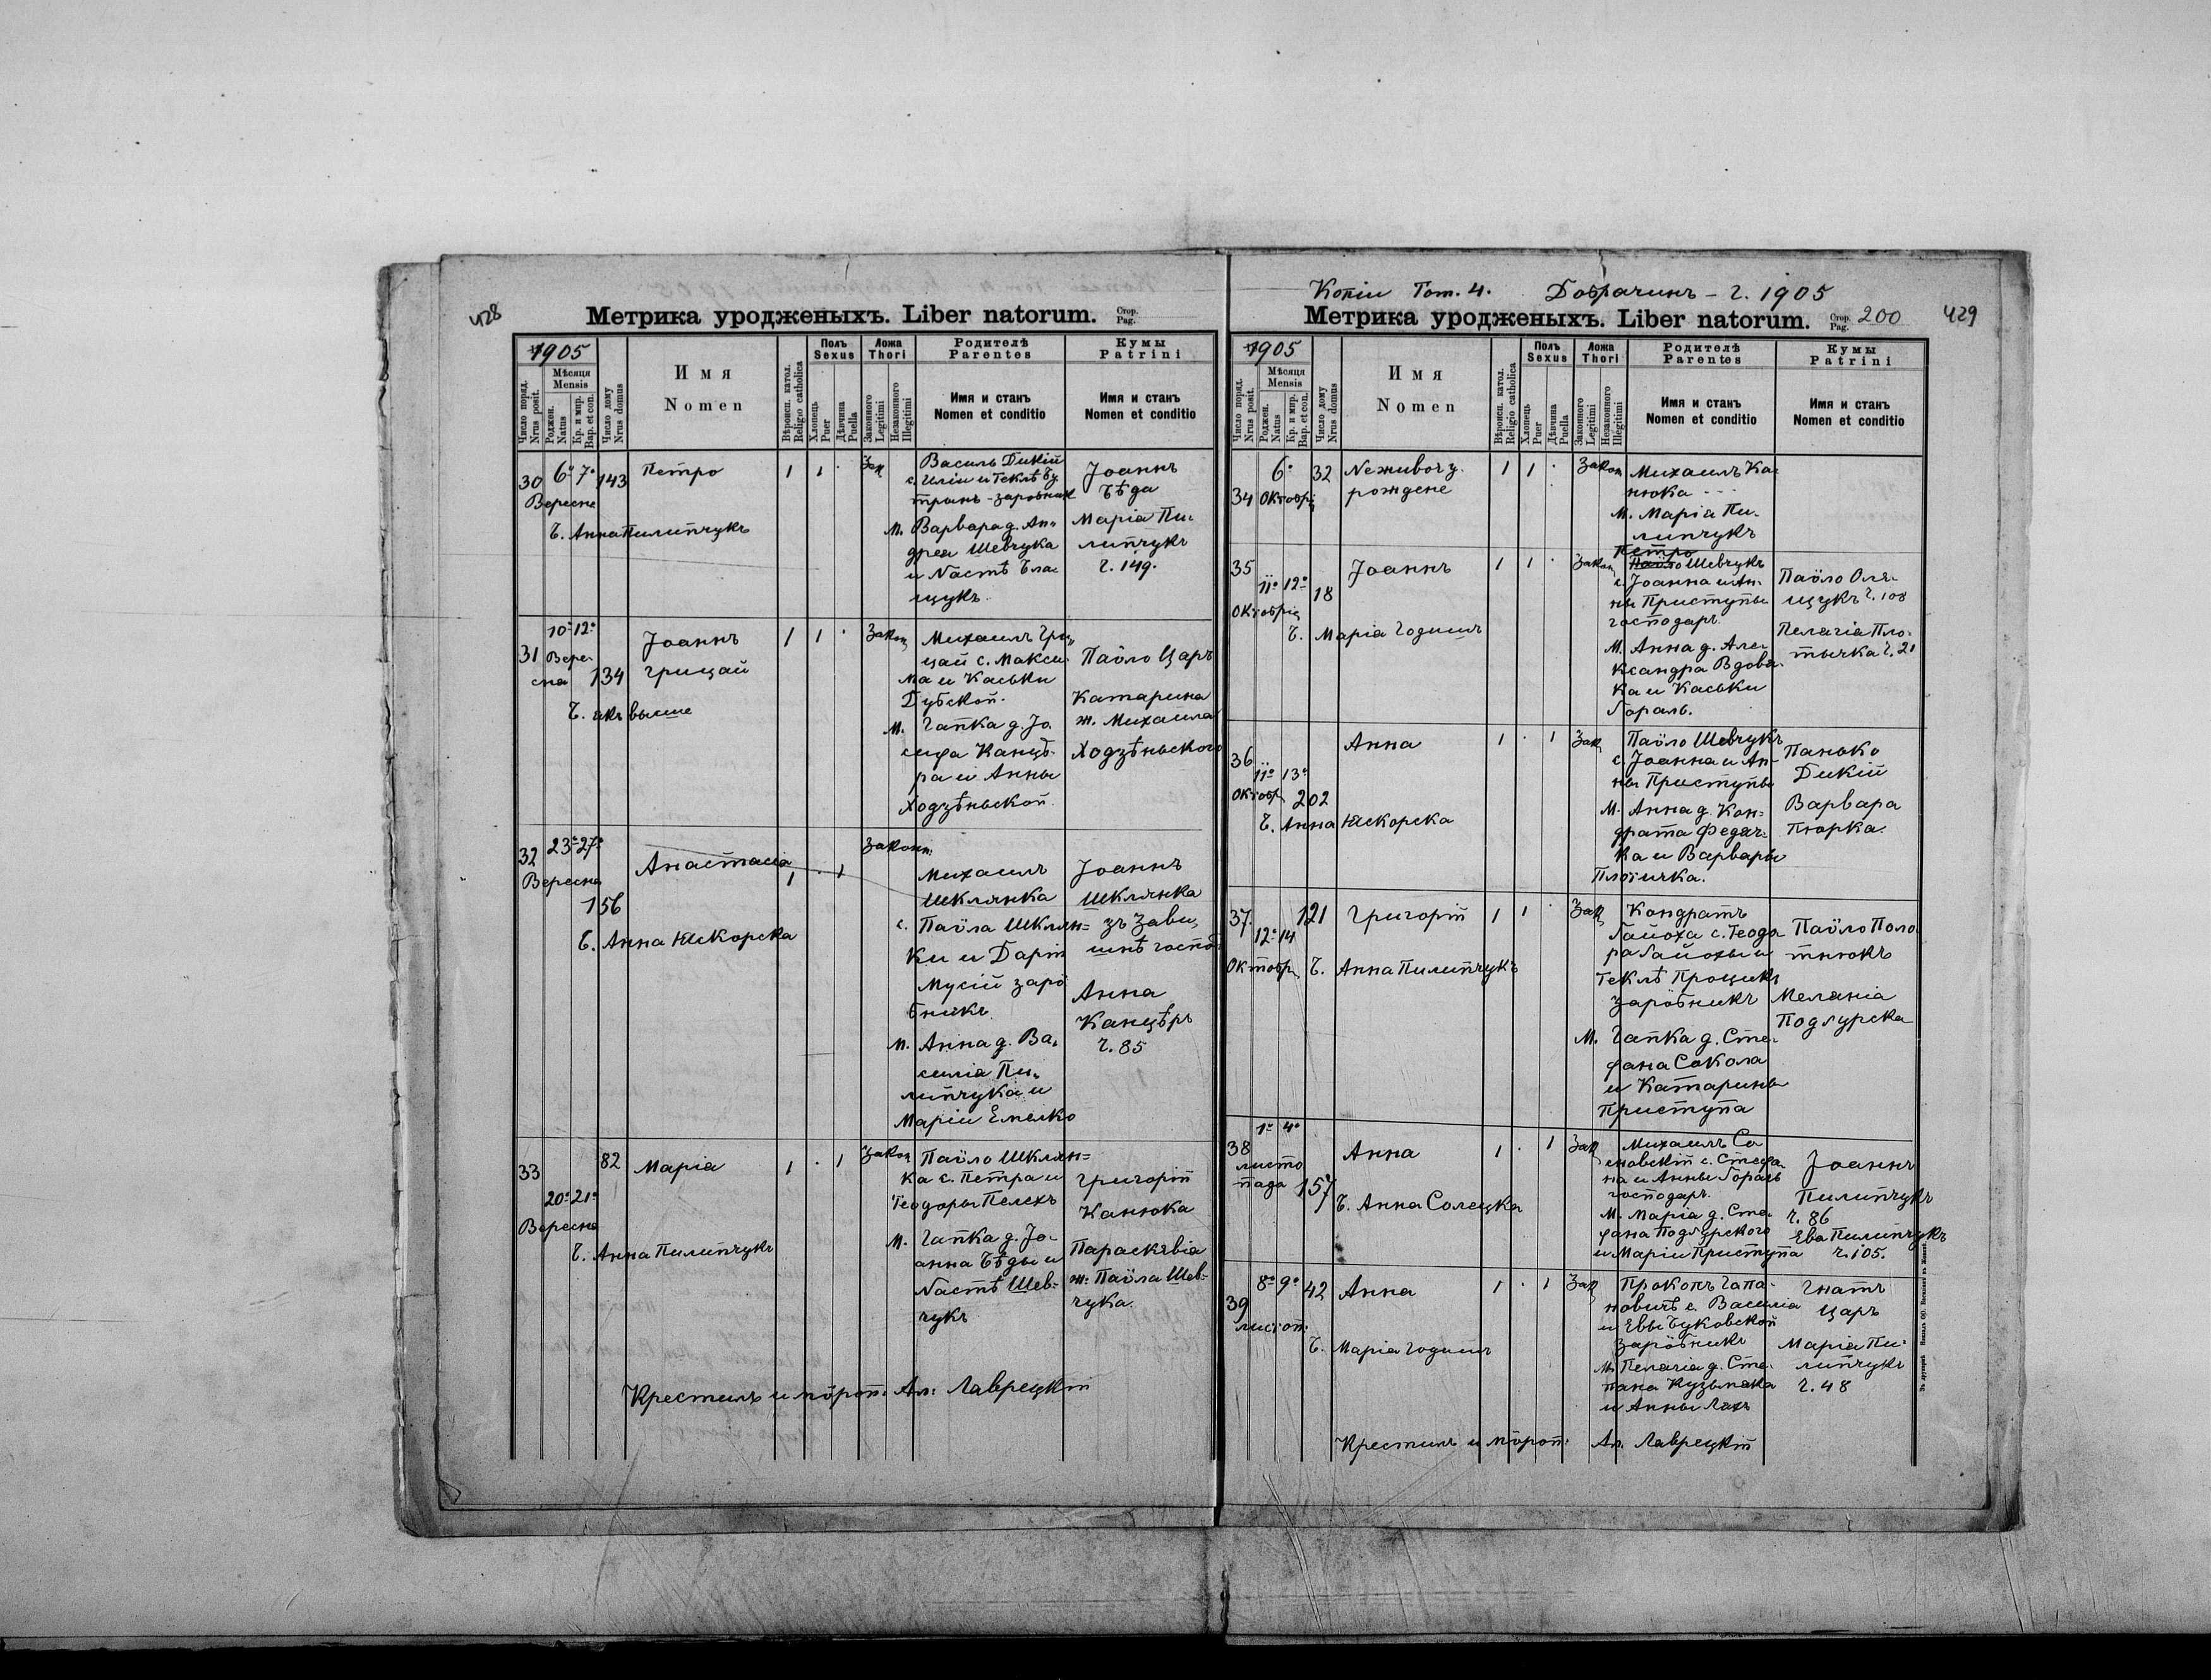 428
Метрика уродженыхъ. Liber natorum. Стор. Pag.
1905
Число поряд. Nrus posit.
Мѣсяця Mensis
Роджен. Natus
Кр. и мир. Bap. et con.
Число дому Nrus domus
Имя
Nomen
Вѣроисп. катол. Religio catholica
Полъ
Sexus
Хлопець Puer
Дѣвчина Puella
Ложа
Thori
Законного Legitimi
Незаконного Illegitimi
Родителѣ
Parentes
Имя и станъ
Nomen et conditio
Кумы
Patrini
Имя и станъ
Nomen et conditio
30 6. 7. 143 Петро 1 1 . Зак
Вересня
Б. Анна Пилипчукъ
Василь Дикій
с. Иліи и Теклѣ Бу
тринь - заробник
М. Варвара д. Ан-
дрея Шевчука
и Настѣ Бла-
щукъ.
Іоаннъ
Бѣда
Марія Пи-
липчукъ
ч. 149.
31 10. 12. Вере-
сня 134 Іоаннъ 1 1 . Закон
Грицай
Б. якъ выше
Михаилъ Гри-
цай с. Макси-
ма и Каськи
Дубской.
М. Гапка д. Іо-
сифа Канцѣ-
ра и Анны
Ходзѣньской.
Паўло Царъ
Катарина
ж. Михаила
Ходзѣньского
32 23. 27. Вересня
156 Анастасія 1 . 1 Законн.
Б. Анна Яскорска
Михаилъ
Шклянка
с. Паўла Шклян-
ки и Даріи
Мусій зарõ
бникъ
М. Анна д. Ва-
силія Пи-
липчука и
Маріи Емелко
Іоаннъ
Шклянка
зъ Зави-
шнѣ господ
Анна
Канцѣръ
ч. 85
33 20. 21. Вересня 82 Марія 1 . 1 Закон
Б. Анна Пилипчукъ
Паўло Шклян-
ка с. Петра и
Теодоры Пелехъ
М. Гапка д. Іо-
анна Бѣды и
Настѣ Шев-
чукъ
Григорій
Канюка
Параскевія
ж. Паўла Шев-
чука.
Крестилъ и мѵроп: Ал: Лаврецкій
Копіи Том. 4. Добрачинъ - г. 1905
Метрика уродженыхъ. Liber natorum. Стор. Pag. 200 429
1905
Число поряд. Nrus posit.
Мѣсяця Mensis
Роджен. Natus
Кр. и мир. Bap. et con.
Число дому Nrus domus
Имя
Nomen
Вѣроисп. катол. Religio catholica
Полъ
Sexus
Хлопець Puer
Дѣвчина Puella
Ложа
Thori
Законного Legitimi
Незаконного Illegitimi
Родителѣ
Parentes
Имя и станъ
Nomen et conditio
Кумы
Patrini
Имя и станъ
Nomen et conditio
34 6. Октобрія 32 Неживо у. 1 1 . Закон
рождене
Михаилъ Ка-
нюка
М. Марія Пи-
липчукъ
35 11. 12. Октобрія 18 Іоаннъ 1 1 . Закон
Б. Марія Годишъ
Петро
Паўло Шевчукъ
с. Іоанна и Ан-
ны Приступы
господарь.
М. Анна д. Але-
ксандра Вдови-
ка и Каськи
Гораль.
Паўло Оле-
щукъ ч. 108
Пелагія Пло-
тычка ч. 21
36 11. 13. Октобр 202 Анна 1 . 1 Зак
Б. Анна Яскорска
Паўло Шевчукъ
с. Іоанна и Ан-
ны Приступы
М. Анна д. Кон-
драта Федеч-
ка и Варвары
Плотичка.
Панько
Дикій
Варвара
Пюрка.
37 12. 14 Октобр 121 Григорій 1 1 . Зак
Б. Анна Пилипчукъ
Кондратъ
Гайоха с. Теодо
ра Гайохи и
Теклѣ Процикъ
зарõбникъ
М. Гапка д. Сте-
фана Сокола
и Катарины
Приступа
Паўло Поло
тнюкъ
Меланія
Подгурска
38 1. 4. листо
пада 157 Анна 1 . 1 Зак
Б. Анна Солецка
Михаилъ Са
новскій с. Стефа-
на и Анны Гораль
господарь.
М. Марія д. Сте-
фана Подгурского
и Маріи Приступа
Іоаннъ
Пилипчукъ
ч. 86
Ева Пилипчукъ
ч. 105.
39 8. 9. листоп: 42 Анна 1 . 1 Зак
Б. Марія Годишъ
Прокопъ Гапа-
новичъ с. Василія
и Евы Буковской
зарõбникъ
М. Пелагія д. Сте-
пана Кузьмяка
и Анны Лахъ
Гнатъ
Царъ
Марія Пи-
липчукъ
ч. 48
Крестилъ и мѵроп: Ал. Лаврецкій